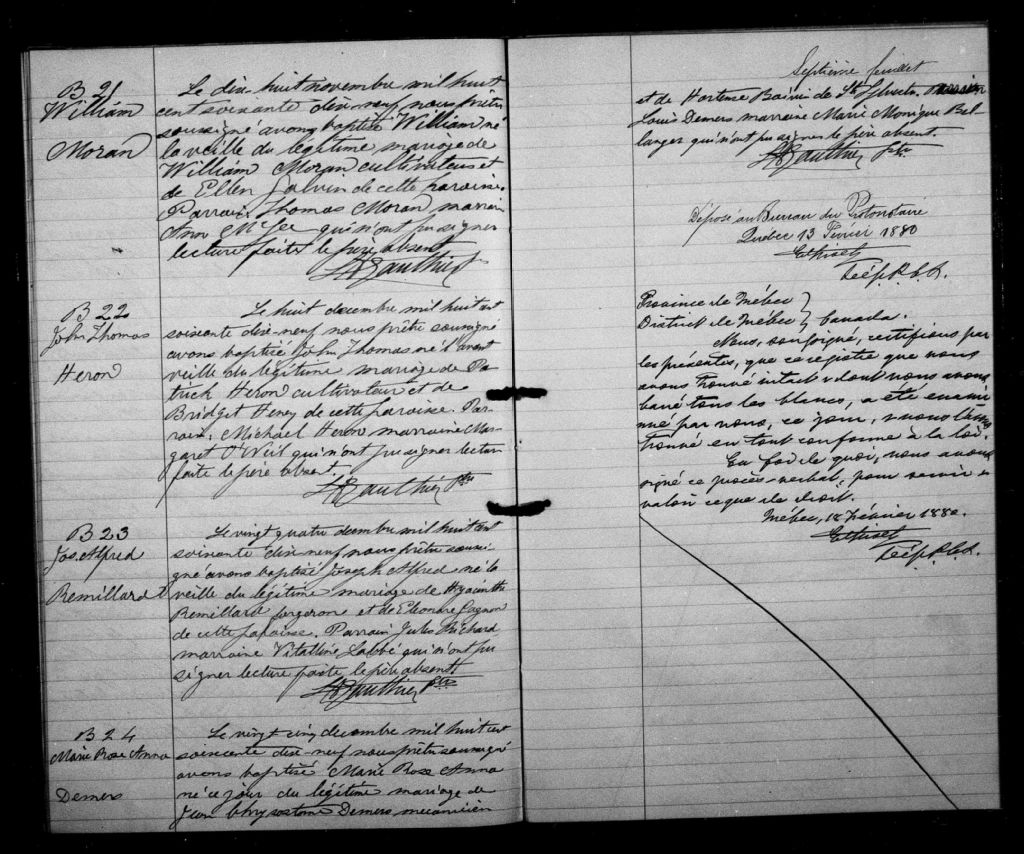 B 21
William
Moran
Le dix-huit novembre mil huit
cent soixante dix-neuf nous prêtre
soussigné avons baptisé William né
la veille du légitime mariage de
William Moran cultivateur et
de Ellen Galvin de cette paroisse.
Parrain Thomas Moran marraine
Ann McGee qui n'ont pu signer
lecture faite le père absent
Gauthier
B 22
John Thomas
Heron
Le huit décembre mil huit cent
soixante dix-neuf nous prêtre soussigné
avons baptisé John Thomas né l'avant
veille du légitime mariage de Pa-
trick Heron cultivateur et de
Bridget Heney de cette paroisse. Par-
rain, Michael Heron marraine Mar-
garet O'Neil qui n'ont pu signer lecture
faite le père absent.
Gauthier Ptre
B 23
Jos. Alfred
Remillard
Le vingt quatre decembre mil huit cent
soixante dix-neuf nous prêtre soussi-
gné avons baptisé Joseph Alfred né la
veille du légitime mariage de Hyacinthe
Remillard forgeron et de Eleonore Gagnon
de cette paroisse. Parrain Jules Richard
marraine Vitaline Labbé qui n'ont pu
signer lecture faite le père absent.
Gauthier Ptre
B 24
Marie Rose Anna
Demers
Le vingt cinq decembre mil huit cent
soixante dix-neuf nous prêtre soussigné
avons baptisé Marie Rose Anna
né ce jour du légitime mariage de
Jean Chrysostome Demers mecanicien
Septième feuillet
et de Hortense de St Sylvestre
Louis Demers marraine Marie Monique Bel-
langer qui n'ont pu signer le père absent.
Gauthier Ptre
Déposé au Bureau du Protonotaire
Québec 13 Février 1880
Dép. P.C.S.
Province de Québec }
District de Québec } Canada.
Nous, soussigné, certifions par
les présentes, que ce registre que nous
avons trouvé intact & dont nous avons
barré tous les blancs, a été exami-
né par nous, ce jour, & nous l'avons
trouvé en tout conforme à la loi.
En foi de quoi, nous avons
signé ce procès-verbal, pour servir et
valoir ce que de droit.
Québec, 18 Février 1880.
Dép. P.C.S.